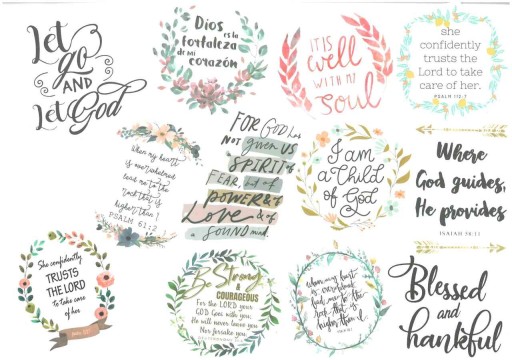 Let
go
AND
Let God
Dios
es la
fortaleza
de mi
corazón
IT IS
well
WITH MY
Soul
she
confidently
trusts the
Lord to take
care of her.
PSALM 112:7
When my heart
is overwhelmed
lead me to the
rock that is
higher than I
PSALM 61:2
FOR GOD has
NOT given US
SPIRIT of
FEAR but of
POWER & of
Love & of
a SOUND mind.
I am
a Child
of God
Where
God guides,
He provides
ISAIAH 58:11
She confidently
TRUSTS
THE LORD
to take care
of her
Be Strong
&
COURAGEOUS
For the LORD your
GOD Goes with you;
He will never leave you
Nor forsake you.
when my heart
is overwhelmed
lead me to the
rock that is
higher than I
Blessed
and
thankful